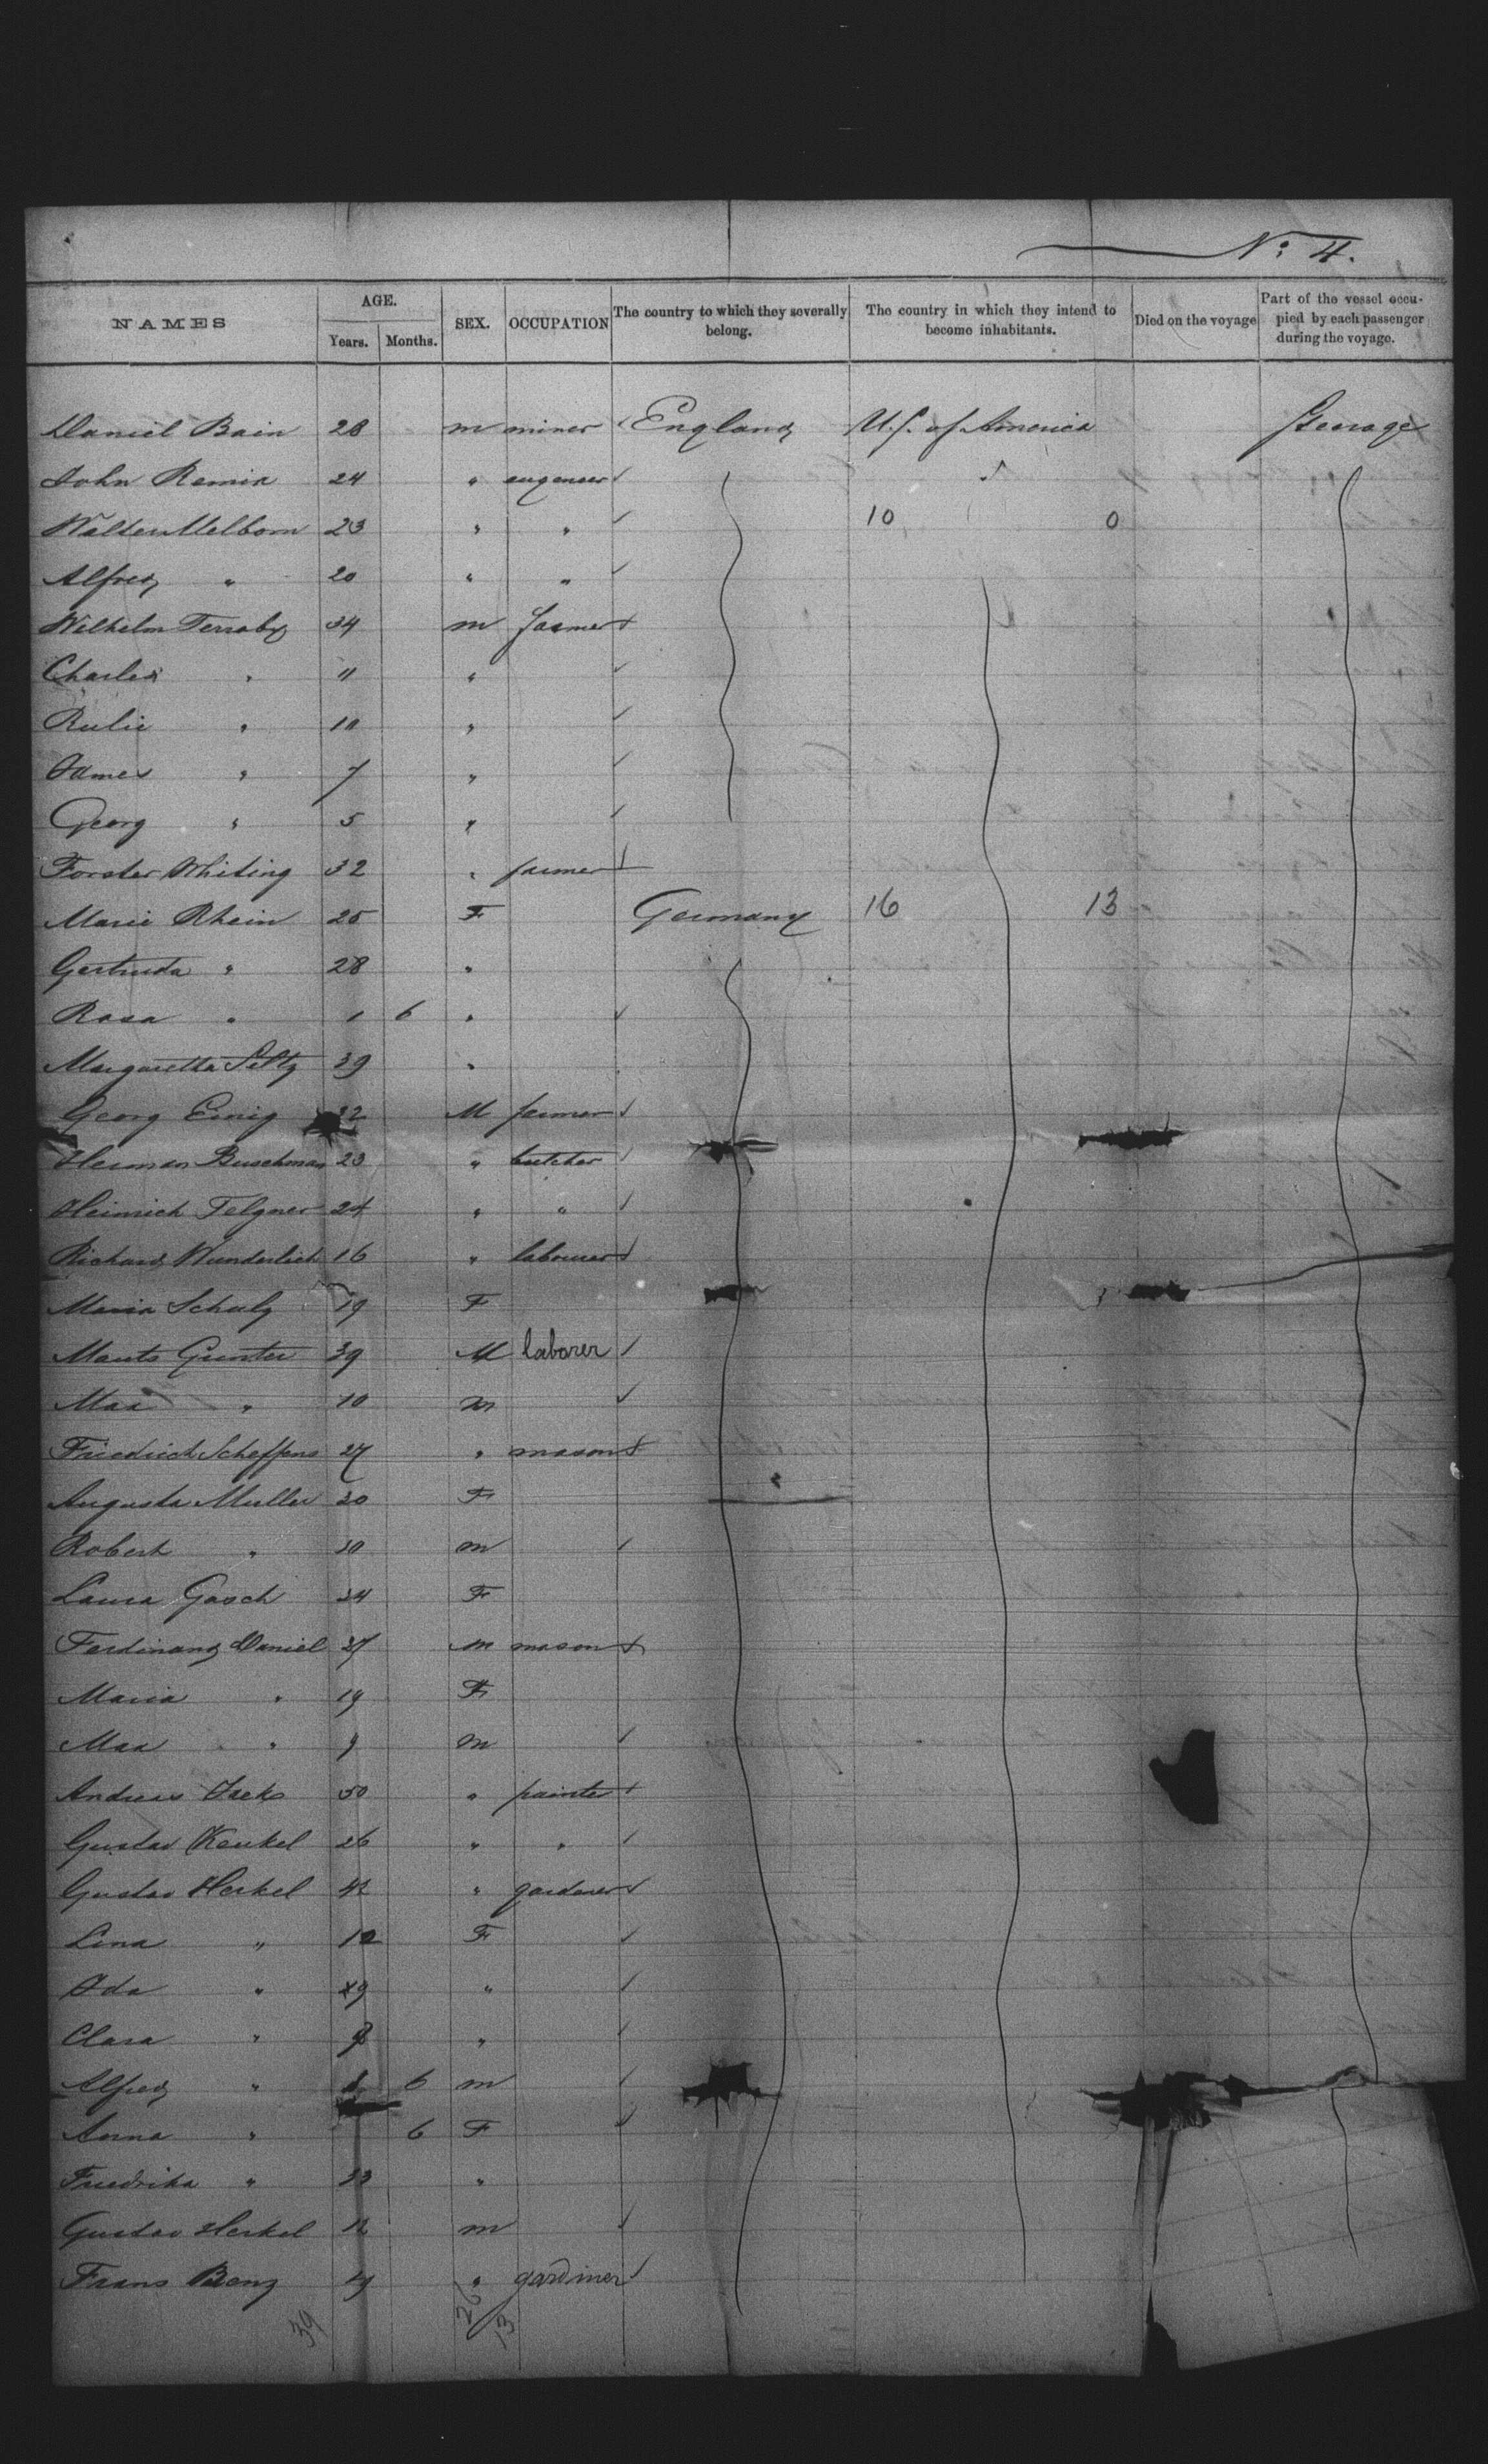 No. 4.
NAMES AGE. Years. Months. SEX. OCCUPATION The country to which they severally belong. The country in which they intend to become inhabitants. Died on the voyage Part of the vessel occupied by each passenger during the voyage.
Daniel Bain 28 m miner England U.S. of America Steerage
John 24 " engeneer
Walter Melborn 23 " " 10 0
Alfred " 20 " "
Wilhelm 34 m farmer
Charles " 11 "
" 10 "
James " 7 "
Georg " 5 "
Forster Whiting 32 " farmer
Marie Rhein 25 F Germany 16 13
Gertruda " 28 "
Rosa " 1 6 "
Margaretha 39 "
Georg Emig 32 M farmer
Herman Buschman 23 " butcher
Heinrich Felgner 24 " "
Richard Wunderlich 16 " labourer
Maria Schulz 19 F
Gunter 39 M laborer
Max " 10 m
Friedrich Scheffens 27 " mason
Augusta Muller 30 F
Robert " 10 m
Laura Gasch 24 F
Ferdinand Daniel 27 m mason
Maria " 19 F
Max " 9 m
Andreas 50 " painter
Gustav Kenkel 26 " "
Gustav Herkel 42 " gardener
Lina " F
Ida " "
Clara " "
Alfred " 6 m
Anna " 6 F
Fredrika " 33 "
Gustav Herkel 12 m
Frans Benz 19 " gardiner
39 26 13